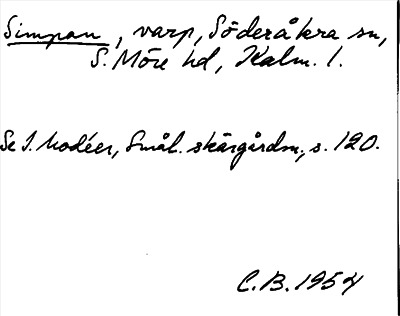 Simpan, varp, Söderåkra sn,
S. Möre hd, Kalm. l.
Se I. Modéer, Smål. skärgårdsn., s. 120.
C.B. 1954